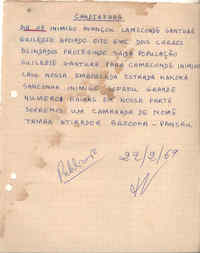 CAMARADA
INIMIGO AVANÇOU CAMECONDE GANTURE
GUILEGE APOIADO OITO GMC DOIS CARROS
BLINDADOS PROTEGENDO SAIDA POPULAÇÃO
GUILEGE GANTURE PARA CAMECONDE INIMIGO
CAIU NOSSA EMBOSCADA ESTRADA
SANCONHA INIMIGO GRANDE
NUMERO BAIXAS EM NOSSA PARTE
SOFREMOS UM CAMARADA DE NOME
TAMBA ATIRADOR BAZOOKA - PANSAU
27/2/69